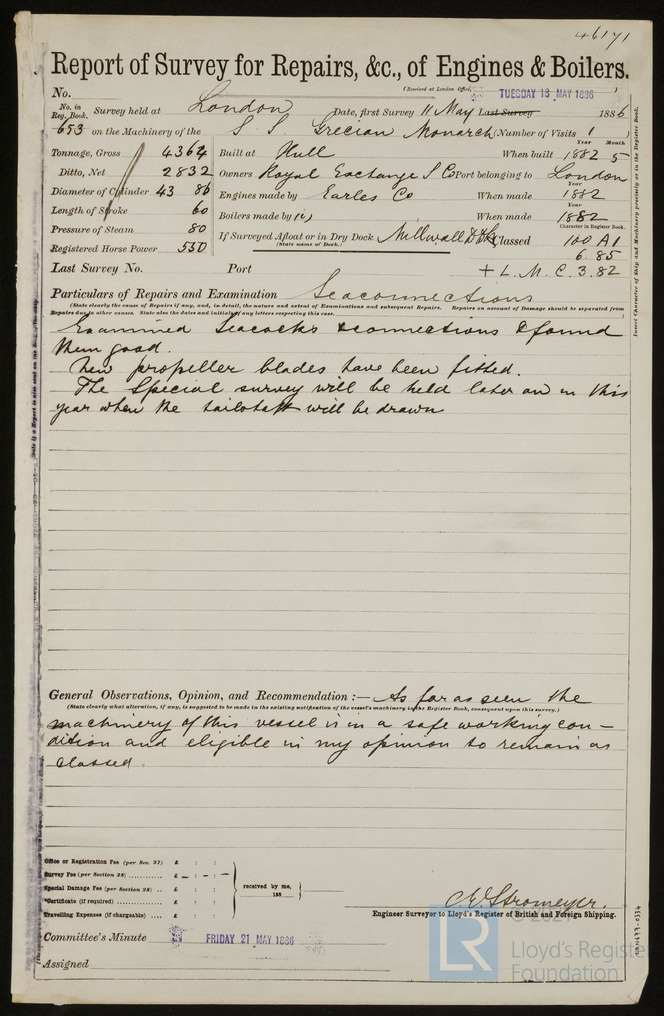 46171
Report of Survey for Repairs, &c., of Engines & Boilers.
(Received at London Office,
No. TUESDAY 18 MAY 1886
No. in Reg. Book. Survey held at London Date, first Survey 11 May Last Survey 1886
653 on the Machinery of the S. S. Grecian Monarch (Number of Visits 1 )
Year Month
Tonnage, Gross 4364 Built at Hull When built 1882 5
Ditto, Net 2832 Owners Royal Exchange S Co Port belonging to London
Year
Diameter of Cylinder 43 86 Engines made by Earles Co When made 1882
Year
Length of Stroke 60 Boilers made by When made 1882
Character in Register Book.
Pressure of Steam 80 If Surveyed Afloat or in Dry Dock Millwall Classed 100 A1
(State name of Dock.)
Registered Horse Power 550 6.85
Last Survey No. Port + L. M. C. 3.82
Particulars of Repairs and Examination Seaconnections
(State clearly the cause of Repairs if any, and, in detail, the nature and extent of Examinations and subsequent Repairs. Repairs on account of Damage should be separated from
Repairs due to other causes. State also the dates and initials of any letters respecting this case.
Examined Seacocks & connections & found
them good.
New propeller blades have been fitted.
The Special survey will be held later on in this
year when the tailshaft will be drawn
General Observations, Opinion, and Recommendation :— As far as seen the
(State clearly what alteration, if any, is suggested to be made in the existing notification of the vessel's machinery in the Register Book, consequent upon this survey.)
machinery of this vessel is in a safe working con-
dition and eligible in my opinion to remain as
classed.
Office or Registration Fee (per Sec. 27) £ : :
Survey Fee (per Section 28) £ – : – : –
Special Damage Fee (per Section 28) £ : :
*Certificate (if required) £ : :
Travelling Expenses (if chargeable) £ : :
received by me,
188
C E Stromeyer.
Engineer Surveyor to Lloyd's Register of British and Foreign Shipping.
Committee's Minute FRIDAY 21 MAY 1886
Assigned
Insert Character of Ship and Machinery precisely as in the Register Book.
LR
© 2021
Lloyd's Register
Foundation